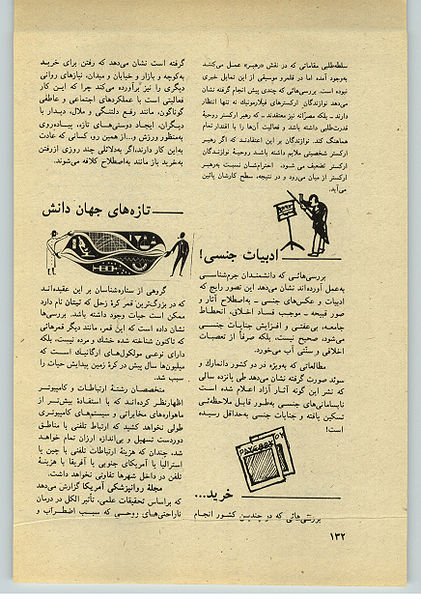 سلطه‌طلبی مقاماتی که در نقش «رهبر» عمل می‌کنند
به‌وجود آمده اما در قلمرو موسیقی از این تمایل خبری
نبوده است. بررسی‌هایی که چندی پیش انجام گرفته نشان
می‌دهد نوازندگان ارکسترهای فیلارمونیک نه تنها انتظار
دارند ـ بلکه مصرانه نیز معتقدند ـ که رهبر ارکستر روحیهٔ
قدرت‌طلبی داشته باشد و فعالیت آن‌ها را با اقتدار تمام
هماهنگ کند. نوازندگان بر این اعتقادنــد که اگر رهبـر
ارکستر شخصیتی ملایم داشته باشـد روحیهٔ نوازنــدگان
ارکستر تضعیف می‌شود. احترامشـان نسبت به‌رهبـر
ارکستر از میان می‌رود و در نتیجه، سطح کارشان پائین
می‌آید.
ادبیات جنسی!
بررسی‌هائی که دانشمندان جرم‌شناسـی
به‌عمل آورده‌اند نشان می‌دهد این تصور رایج که
ادبیات و عکس‌های جنسی ـ به‌اصطلاح آثار و
صور قبیحه ـ موجب فساد اخلاق، انحطـاط
جامعـه، بی‌عفتی و افزایش جنایات جنسـی
می‌شود، صحیح نیست، بلکه صرفاً از تعصبات
اخلاقی و سنّتی آب می‌خورد.
مطالعاتی که به‌ویژه در دو کشور دانمارك و
سوئد صورت گرفته نشان می‌دهد طی پانزده سالی
که نشر این گونه آثار آزاد اعلام شده است
نابسامانی‌های جنسی به‌طور قابل ملاحظه‌ئی
تسکین یافته و جنایات جنسی به‌حداقل رسیده
است!
خرید...
بررسی‌هائی که در چندیـن کشـور انجـام
گرفته است نشان می‌دهد که رفتن برای خریـد
به‌کوچه و بازار و خیابان و میدان، نیازهای روانی
دیگری را نیز برآورده می‌کند چرا که ایـن کار
فعالیتی است با عملکردهای اجتماعی و عاطفی
گوناگون، مانند رفـع دلتنگـی و ملال، دیدار با
دیگران، ایجاد دوستی‌های تازه، پیاده‌روی
به‌منظور ورزش و...از همین رو، کسانی که عادت
به‌این کار دارند،اگر به‌دلائلی چند روزی ازرفتن
به‌خرید باز مانند به‌اصطلاح کلافه می‌شوند.
تازه‌های جهان دانش
گروهی از ستاره‌شناسان بر این عقیده‌انـد
که در بزرگ‌ترین قمر کرهٔ زحل که تیتان نام دارد
ممکن است حیات وجود داشته باشد. بررسی‌ها
نشان داده است که این قمر، مانند دیگر قمرهائی
که تاکنون شناخته شده خشك و مرده نیست، بلکه
دارای نوعی مولکول‌های ارگانیـك اسـت که
میلیون‌ها سال پیش در کرهٔ زمین پیدایش حیات را
سبب شد.
متخصصـان رشتهٔ ارتباطـات و کامپیوتـر
اظهارنظر کرده‌انـد که با استفـادهٔ بیش‌تـر از
ماهواره‌های مخابراتی و سیستم‌های کامپیوتری
طولی نخواهد کشید که ارتباط تلفنی با مناطق
دوردست تسهیل و بی‌اندازه ارزان تمام خواهـد
شد، چندان که هزینهٔ ارتباطات تلفنی با چین یا
استرالیا یا آمریکای جنوبی یا آفریقا با هزینـهٔ
تلفن در داخل شهرها تفاوتی نخواهد داشت.
مجلهٔ روانپزشکی آمریکا گزارش می‌دهد
که براساس تحقیقات علمی، تأثیر الکل در درمان
ناراحتی‌های روحـی که سبـب اضطـراب و
۱۳۲